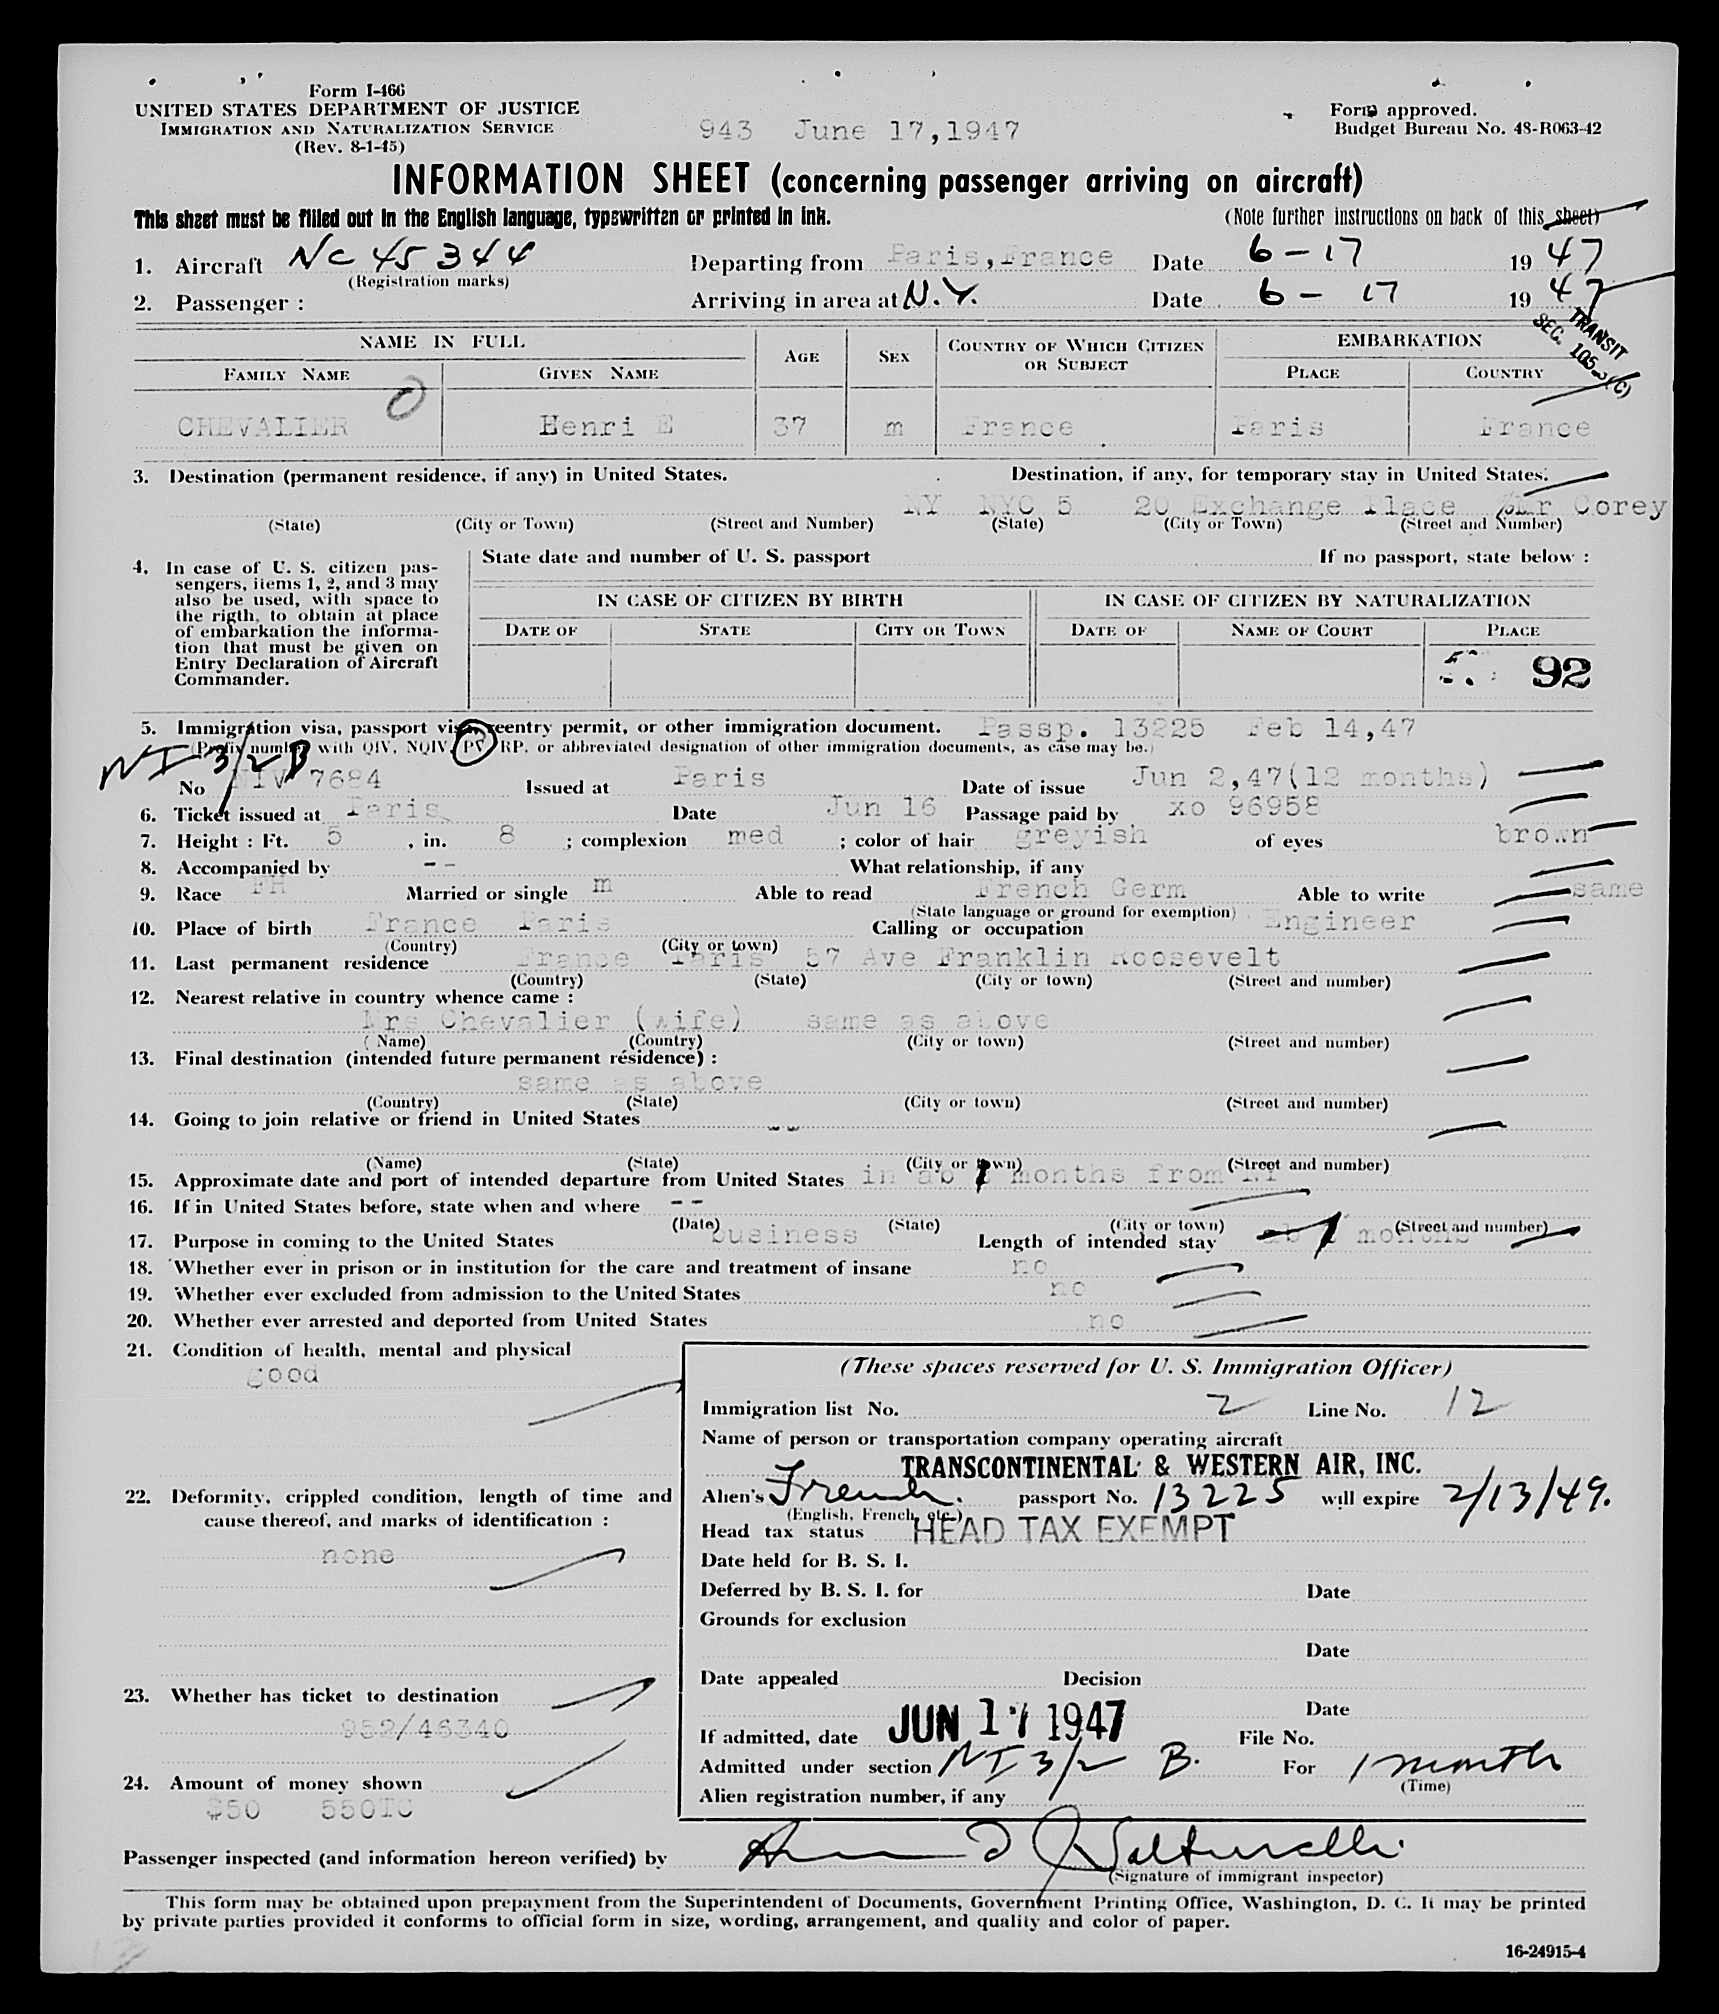 Form I-466
UNITED STATES DEPARTMENT OF JUSTICE
IMMIGRATION AND NATURALIZATION SERVICE
(Rev. 8-1-45)
943 June 17,1947
Form approved.
Budget Bureau No. 48-R063-42
INFORMATION SHEET (concerning passenger arriving on aircraft)
This sheet must be filled out in the English language, typewritten or printed in ink.
(Note further instructions on back of this sheet)
1. Aircraft NC 45344 Departing from Paris,France Date 6-17 19 47
(Registration marks)
2. Passenger : Arriving in area at N.Y. Date 6-17 19 47
TRANSIT
SEC. 105 (C)
NAME IN FULL AGE SEX COUNTRY OF WHICH CITIZEN OR SUBJECT EMBARKATION
FAMILY NAME GIVEN NAME PLACE COUNTRY
CHEVALIER Henri E 37 m France Paris France
3. Destination (permanent residence, if any) in United States. Destination, if any, for temporary stay in United States.
NY NYC 5 20 Exchange Place Mr Corey
(State) (City or Town) (Street and Number) (State) (City or Town) (Street and Number)
4. In case of U. S. citizen pas-
sengers, items 1, 2, and 3 may
also be used, with space to
the rigth, to obtain at place
of embarkation the informa-
tion that must be given on
Entry Declaration of Aircraft
Commander.
State date and number of U. S. passport If no passport, state below :
IN CASE OF CITIZEN BY BIRTH IN CASE OF CITIZEN BY NATURALIZATION
DATE OF STATE CITY OR TOWN DATE OF NAME OF COURT PLACE
92
5. Immigration visa, passport visa, reentry permit, or other immigration document. Passp. 13225 Feb 14,47
(Prefix number with QIV, NQIV, PV, RP, or abbreviated designation of other immigration documents, as case may be.)
NI 3/2 B
No NIV 7684 Issued at Paris Date of issue Jun 2,47(12 months)
6. Ticket issued at Paris Date Jun 16 Passage paid by xo 96958
7. Height : Ft. 5 , in. 8 ; complexion med ; color of hair greyish of eyes brown
8. Accompanied by -- What relationship, if any
9. Race FH Married or single m Able to read French Germ Able to write same
(State language or ground for exemption)
10. Place of birth France Paris Calling or occupation Engineer
(Country) (City or town)
11. Last permanent residence France Paris 57 Ave Franklin Roosevelt
(Country) (State) (City or town) (Street and number)
12. Nearest relative in country whence came :
Mrs Chevalier (wife) same as above
( Name) (Country) (City or town) (Street and number)
13. Final destination (intended future permanent résidence) :
same as above
(Country) (State) (City or town) (Street and number)
14. Going to join relative or friend in United States --
(Name) (State) (City or town) (Street and number)
15. Approximate date and port of intended departure from United States in ab 1 months from NY
16. If in United States before, state when and where --
(Date) (State) (City or town) (Street and number)
17. Purpose in coming to the United States business Length of intended stay ab 1 months
18. Whether ever in prison or in institution for the care and treatment of insane no
19. Whether ever excluded from admission to the United States no
20. Whether ever arrested and deported from United States no
21. Condition of health, mental and physical
good
22. Deformity, crippled condition, length of time and
cause thereof, and marks of identification :
none
23. Whether has ticket to destination
952/46340
24. Amount of money shown
$50 550TC
(These spaces reserved for U. S. Immigration Officer)
Immigration list No. 2 Line No. 12
Name of person or transportation company operating aircraft
TRANSCONTINENTAL & WESTERN AIR, INC.
Alien's French. passport No. 13225 will expire 2/13/49.
(English, French, etc.)
Head tax status HEAD TAX EXEMPT
Date held for B. S. I.
Deferred by B. S. I. for Date
Grounds for exclusion
Date
Date appealed Decision
Date
If admitted, date JUN 17 1947 File No.
Admitted under section NI 3/2 B. For 1 month
(Time)
Alien registration number, if any
Passenger inspected (and information hereon verified) by
(Signature of immigrant inspector)
This form may be obtained upon prepayment from the Superintendent of Documents, Government Printing Office, Washington, D. C. It may be printed
by private parties provided it conforms to official form in size, wording, arrangement, and quality and color of paper.
16-24915-4